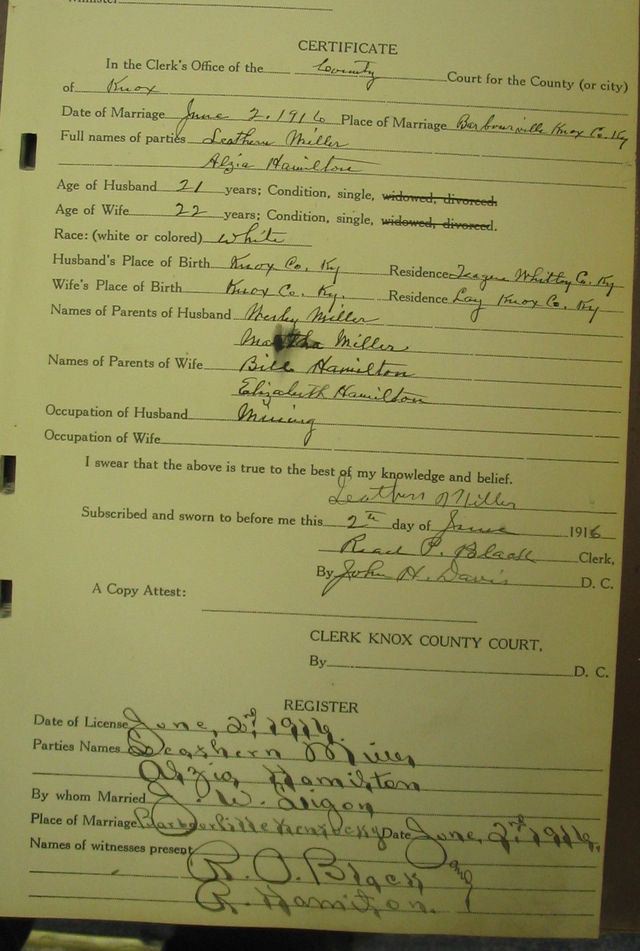 Minister
CERTIFICATE
In the Clerk's Office of the County Court for the County (or city)
of Knox
Date of Marriage June 2, 1916 Place of Marriage Barbourville Knox Co. Ky
Full names of parties Leathern Miller
Alzia Hamilton
Age of Husband 21 years; Condition, single, widowed, divorced.
Age of Wife 22 years; Condition, single, widowed, divorced.
Race: (white or colored) White
Husband's Place of Birth Knox Co. Ky Residence Whitley Co. Ky
Wife's Place of Birth Knox Co. Ky. Residence Lay Knox Co. Ky
Names of Parents of Husband Wesley Miller
Martha Miller
Names of Parents of Wife Bill Hamilton
Elizabeth Hamilton
Occupation of Husband Mining
Occupation of Wife
I swear that the above is true to the best of my knowledge and belief.
Leathern Miller
Subscribed and sworn to before me this 2th day of June 1916
Read P. Black Clerk,
By John H. Davis D. C.
A Copy Attest:
CLERK KNOX COUNTY COURT.
By D. C.
REGISTER
Date of License June, 2nd, 1916.
Parties Names Leathern Miller
Alzia Hamilton
By whom Married J. W. Ligon
Place of Marriage Barbourville Kentucky Date June, 2nd, 1916.
Names of witnesses present R. O. Black and
R. Hamilton.